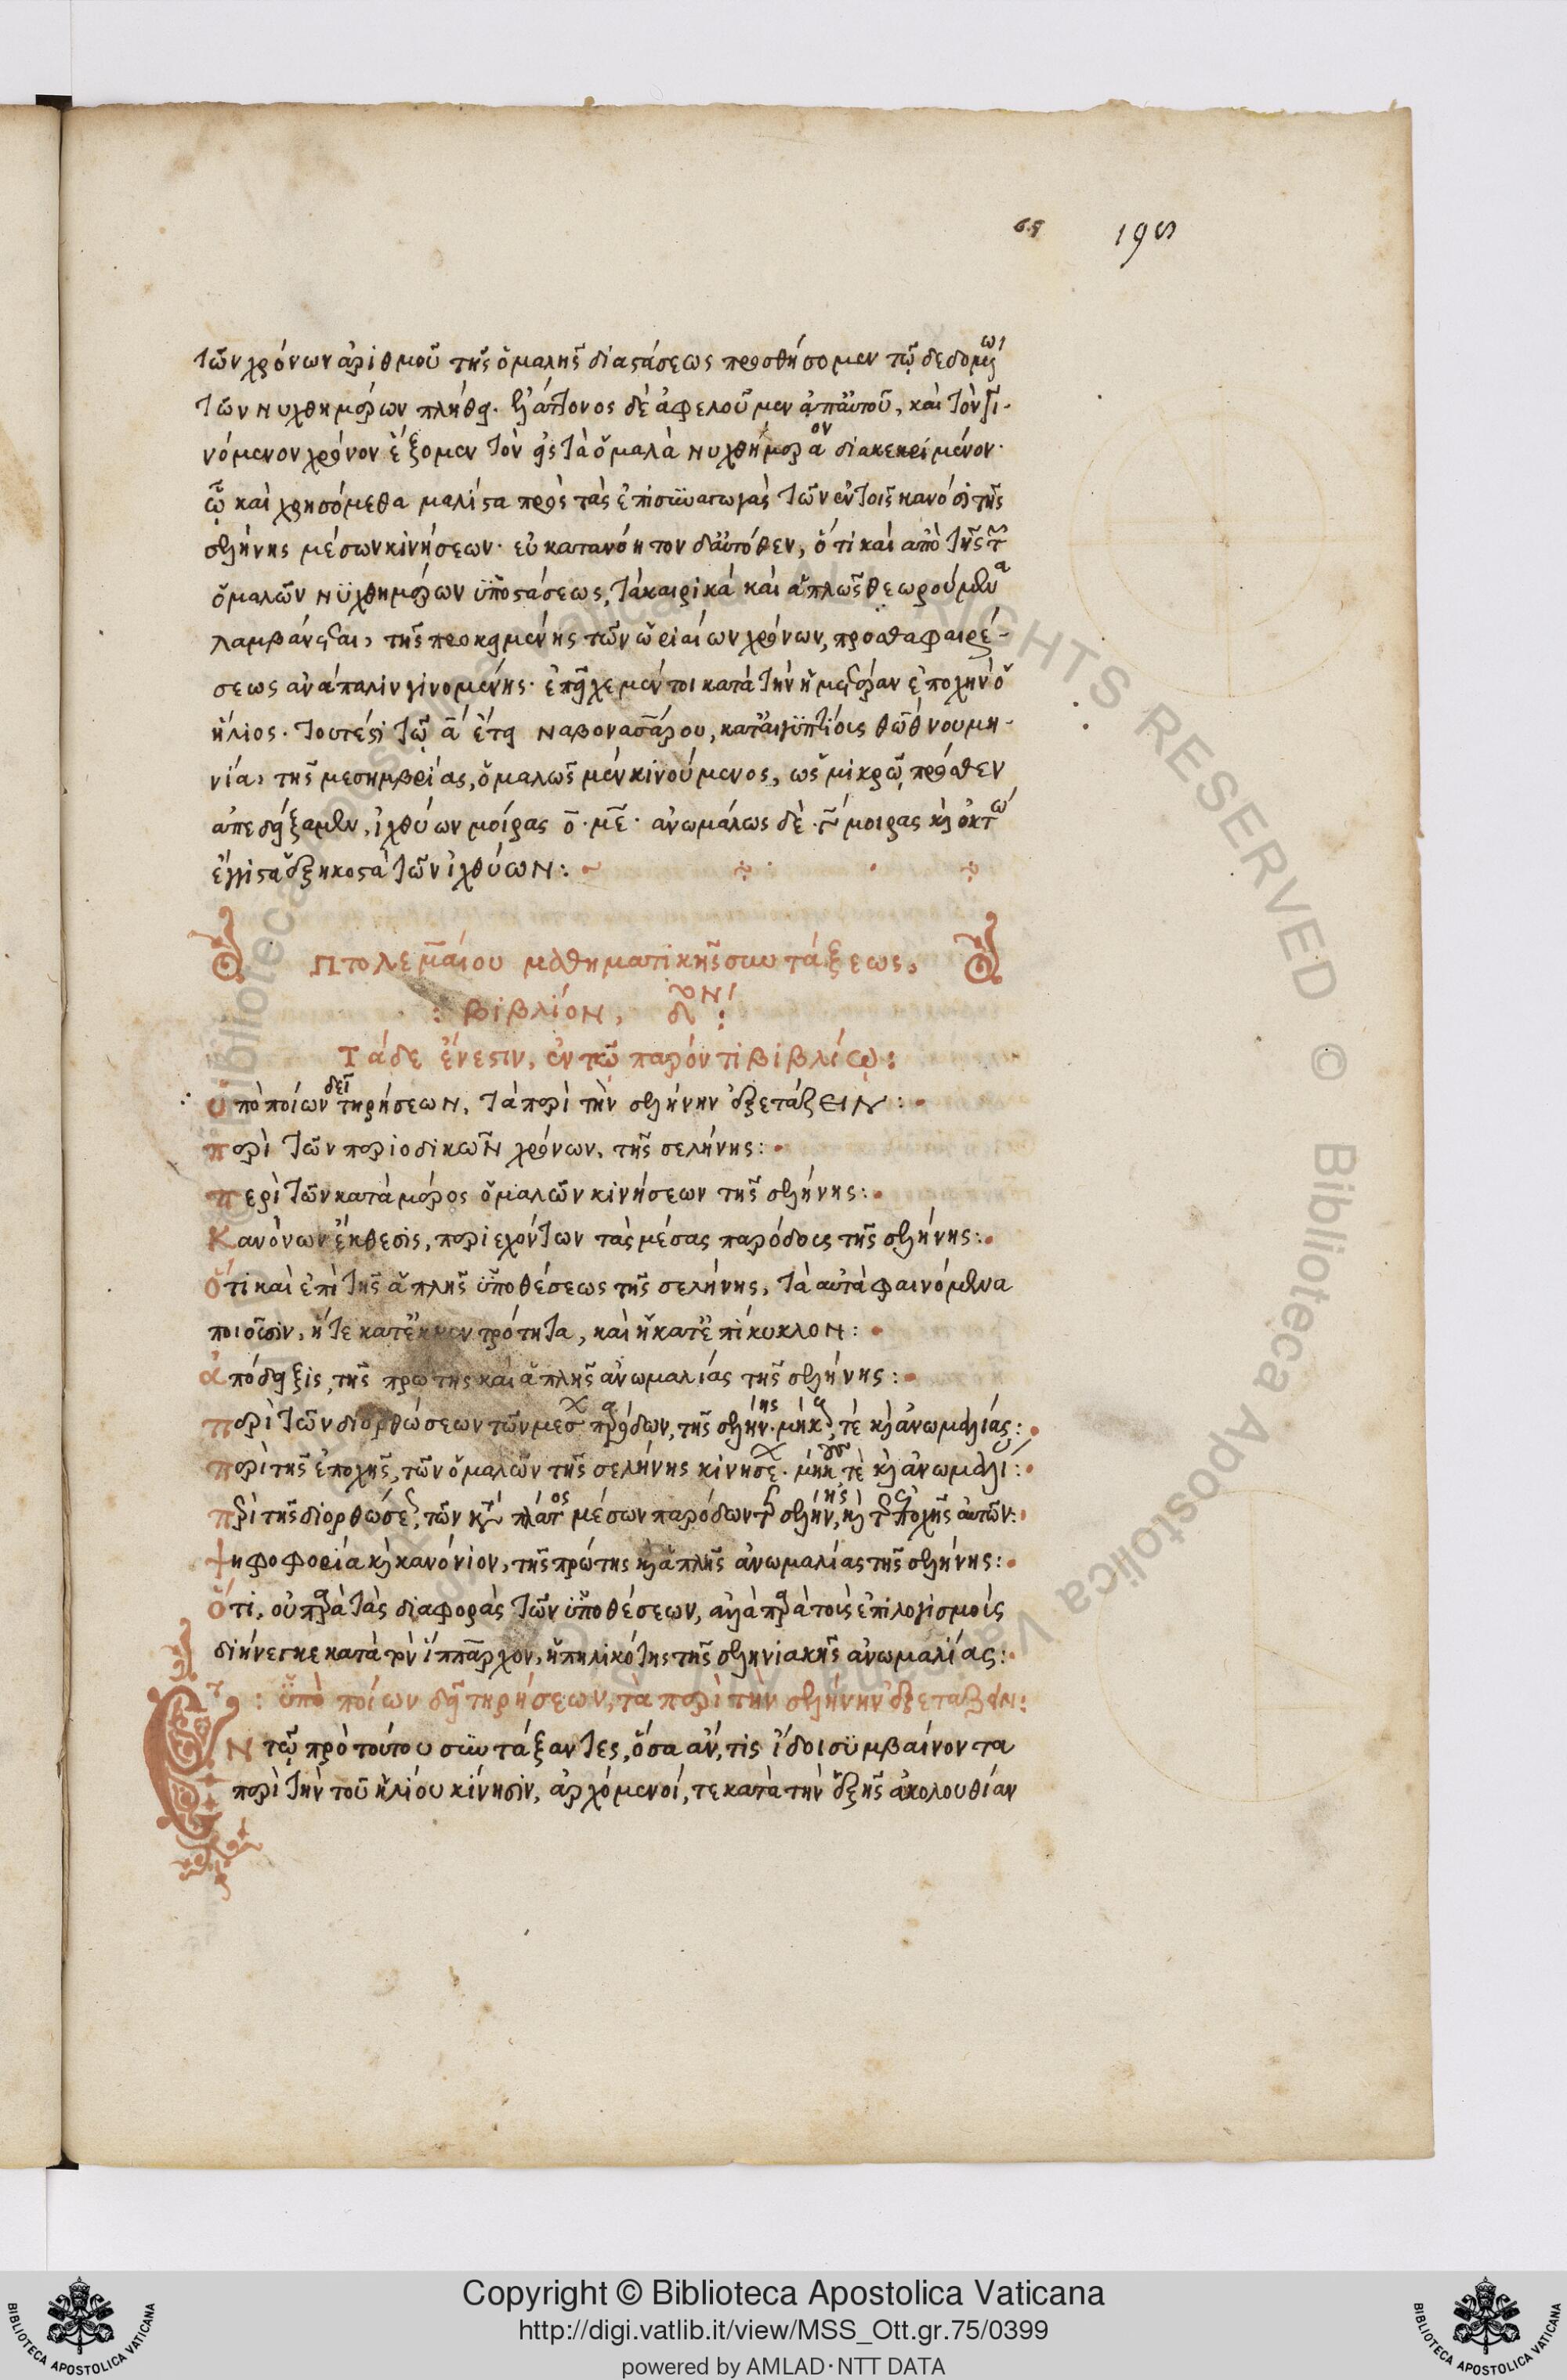 68 195
τῶν χρόνων ἀριθμοῦ τῆς ὁμαλῆς διαστάσεως προσθήσομεν τῷ δεδομένωι
τῶν νυχθημέρων πλήθει. ἐλάττονος δὲ ἀφελοῦμεν ἀπ' αὐτοῦ, καὶ τὸν γι-
νόμενον χρόνον ἕξομεν τὸν εἰς τὰ ὁμαλὰ νυχθήμερα διακεκριμένον.
ᾧ καὶ χρησόμεθα μάλιστα πρὸς τὰς ἐπισυναγωγὰς τῶν ἐν τοῖς κανόσι τῆς
σελήνης μέσων κινήσεων. εὐκατανόητον δ' αὐτόθεν, ὅτι καὶ ἀπὸ τῆς τῶν
ὁμαλῶν νυχθημέρων ὑποστάσεως, τὰ καιρικὰ καὶ ἁπλῶς θεωρούμενα
λαμβάνεται, τῆς προκειμένης τῶν ὡριαίων χρόνων, προσθαφαιρέ-
σεως ἀνάπαλιν γινομένης. ἐπεῖχε μέντοι κατὰ τὴν ἡμετέραν ἐποχὴν ὁ
ἥλιος. τουτέστι τῷ α ἔτει Ναβονασάρου, κατ' αἰγυπτίους θὼθ νουμη-
νία, τῆς μεσημβρίας, ὁμαλῶς μὲν κινούμενος, ὡς μικρῷ πρόσθεν
ἀπεδείξαμεν, ἰχθύων μοίρας ο. με. ἀνωμάλως δὲ. γ μοίρας καὶ ὀκτώ
ἔγγιστα ἑξηκοστὰ τῶν ἰχθύων:
Πτολεμαίου μαθηματικῆς συντάξεως,
: βιβλίον, δον :
Τάδε ἔνεστιν, ἐν τῷ παρόντι βιβλίῳ:
ὑπὸ ποίων δεῖ τηρήσεων, τὰ περὶ τὴν σελήνην ἐξετάζειν:
περὶ τῶν περιοδικῶν χρόνων, τῆς σελήνης:
περὶ τῶν κατὰ μέρος ὁμαλῶν κινήσεων τῆς σελήνης:
Κανόνων ἔκθεσις, περιεχόντων τὰς μέσας παρόδους τῆς σελήνης:
ὅτι καὶ ἐπὶ τῆς ἁπλῆς ὑποθέσεως τῆς σελήνης, τὰ αὐτὰ φαινόμενα
ποιοῦσιν, ἥτε κατ' ἐκκεντρότητα, καὶ ἡ κατ' ἐπίκυκλον:
ἀπόδειξις, τῆς πρώτης καὶ ἁπλῆς ἀνωμαλίας τῆς σελήνης:
περὶ τῶν διορθώσεων τῶν μέσων παρόδων, τῆς σελήνης. μήκους, τὲ καὶ ἀνωμαλίας:
περὶ τῆς ἐποχῆς, τῶν ὁμαλῶν τῆς σελήνης κινήσεων. μήκους τὲ καὶ ἀνωμαλίας:
περὶ τῆς διορθώσεως, τῶν κατὰ πλάτος μέσων παρόδων τῆς σελήνης, καὶ τῆς ἐποχῆς αὐτῶν:
ψηφοφορία καὶ κανόνιον, τῆς πρώτης καὶ ἁπλῆς ἀνωμαλίας τῆς σελήνης:
ὅτι, οὐ παρὰ τὰς διαφορὰς τῶν ὑποθέσεων, ἀλλὰ παρὰ τοὺς ἐπιλογισμοὺς
διήνεγκε κατὰ τὸν ἵππαρχον, ἡ πηλικότης τῆς σεληνιακῆς ἀνωμαλίας:
: ὑπὸ ποίων δεῖ τηρήσεων, τὰ περὶ τὴν σελήνην ἐξετάζειν:
ΕΝ τῷ πρὸ τούτου συντάξαντες, ὅσα ἄν, τις ἴδοι συμβαίνοντα
περὶ τὴν τοῦ ἡλίου κίνησιν, ἀρχόμενοί, τε κατὰ τὴν ἑξῆς ἀκολουθίαν
ALL RIGHTS RESERVED © Biblioteca Apostolica Vaticana
Copyright © Biblioteca Apostolica Vaticana
http://digi.vatlib.it/view/MSS_Ott.gr.75/0399
powered by AMLAD·NTT DATA
BIBLIOTECA APOSTOLICA VATICANA
BIBLIOTECA APOSTOLICA VATICANA